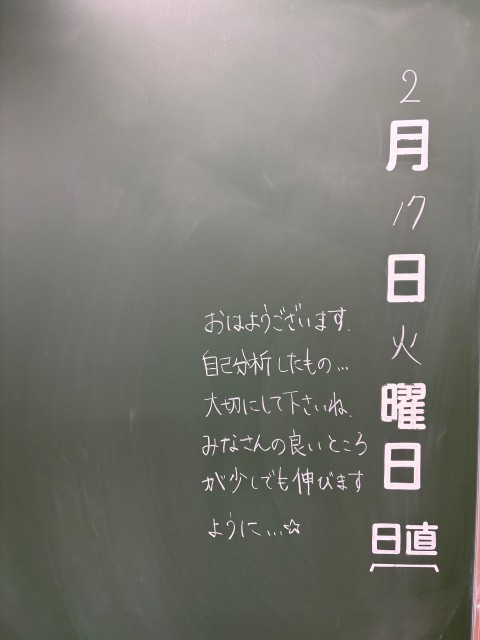 2月17日火曜日
日直
おはようございます.
自己分析したもの...
大切にして下さいね.
みなさんの良いところ
が少しでも伸びます
ように...☆